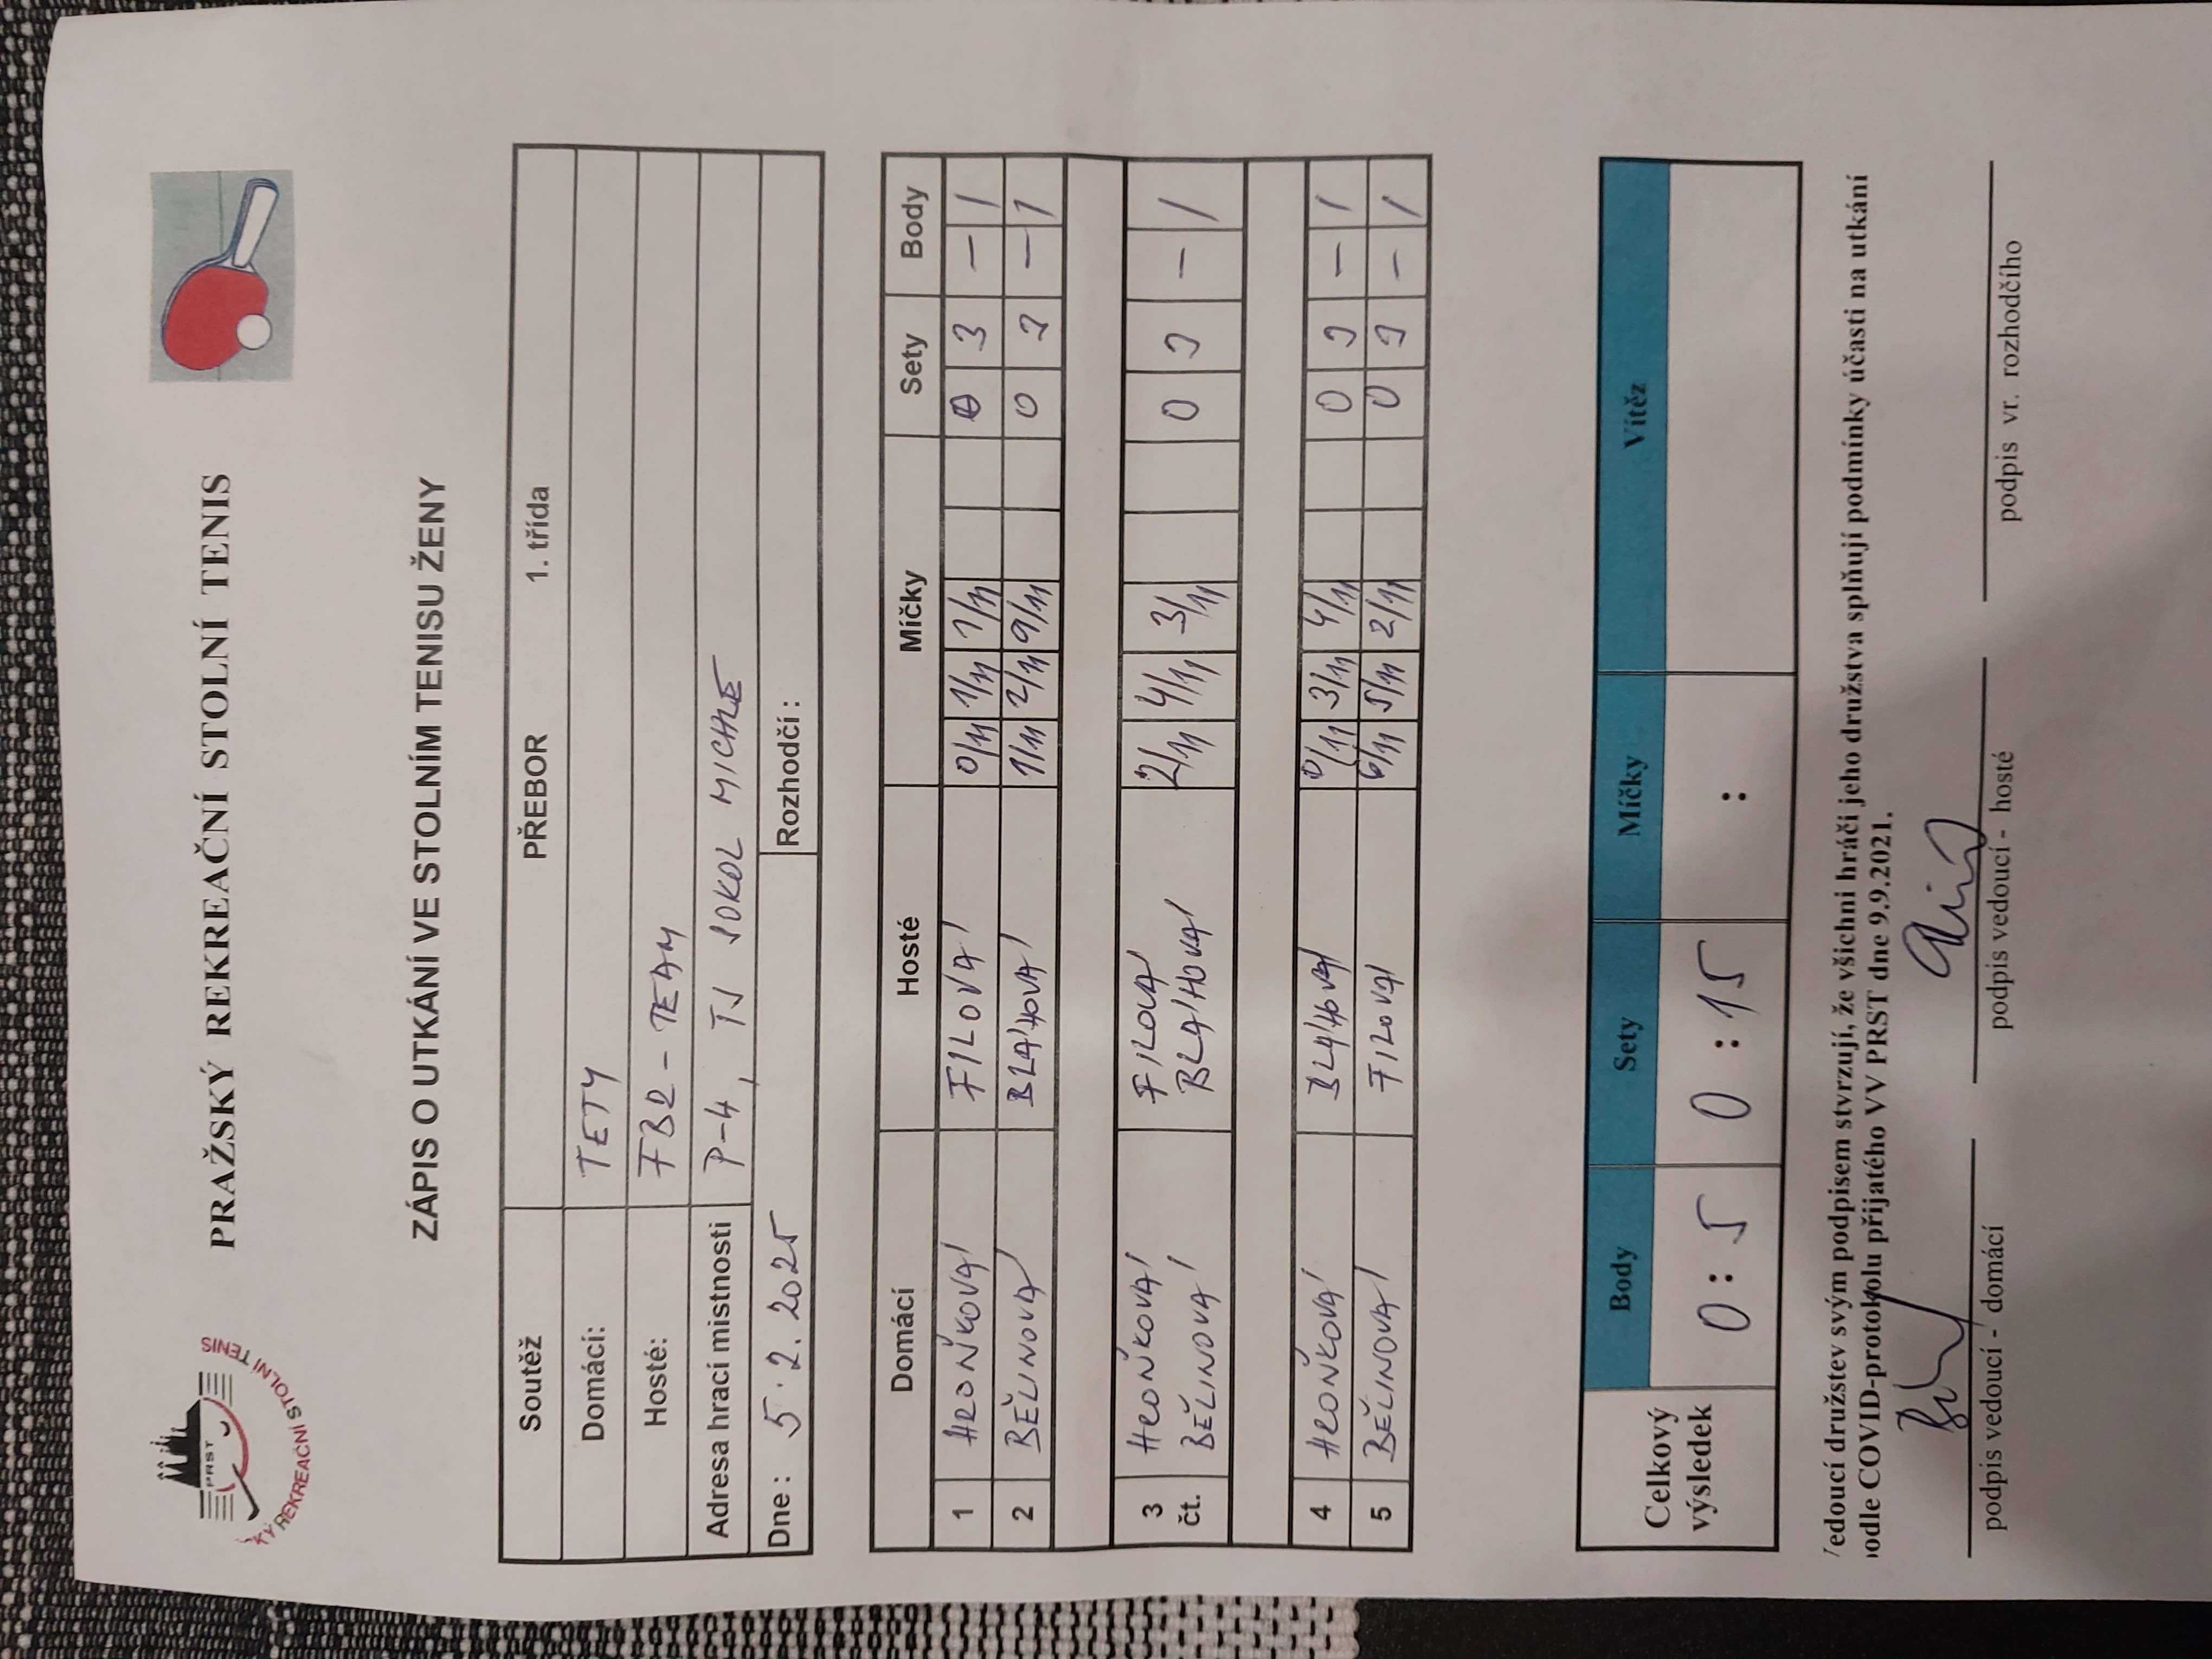 PRAŽSKÝ REKREAČNÍ STOLNÍ TENIS
PRST
KÝ REKREAČNÍ STOLNÍ TENIS
ZÁPIS O UTKÁNÍ VE STOLNÍM TENISU ŽENY
Soutěž PŘEBOR 1. třída
Domácí: TETY
Hosté: FB2 - TEAM
Adresa hrací místnosti P-4, TJ SOKOL MICHLE
Dne: 5.2.2025 Rozhodčí:
Domácí Hosté Míčky Sety Body
1 HROŇKOVÁ FILOVÁ 0/11 1/11 1/11 0 3 – 1
2 BĚLINOVÁ BLÁHOVÁ 1/11 2/11 9/11 0 3 – 1
3 HROŇKOVÁ FILOVÁ 2/11 4/11 3/11 0 3 – 1
čt. BĚLINOVÁ BLÁHOVÁ
4 HROŇKOVÁ BLÁHOVÁ 0/11 3/11 4/11 0 3 – 1
5 BĚLINOVÁ FILOVÁ 6/11 5/11 2/11 0 3 – 1
Celkový výsledek Body Sety Míčky Vítěz
0 : 5 0 : 15 :
Vedoucí družstev svým podpisem stvrzují, že všichni hráči jeho družstva splňují podmínky účasti na utkání
podle COVID-protokolu přijatého VV PRST dne 9.9.2021.
podpis vedoucí - domácí podpis vedoucí - hosté podpis vr. rozhodčího